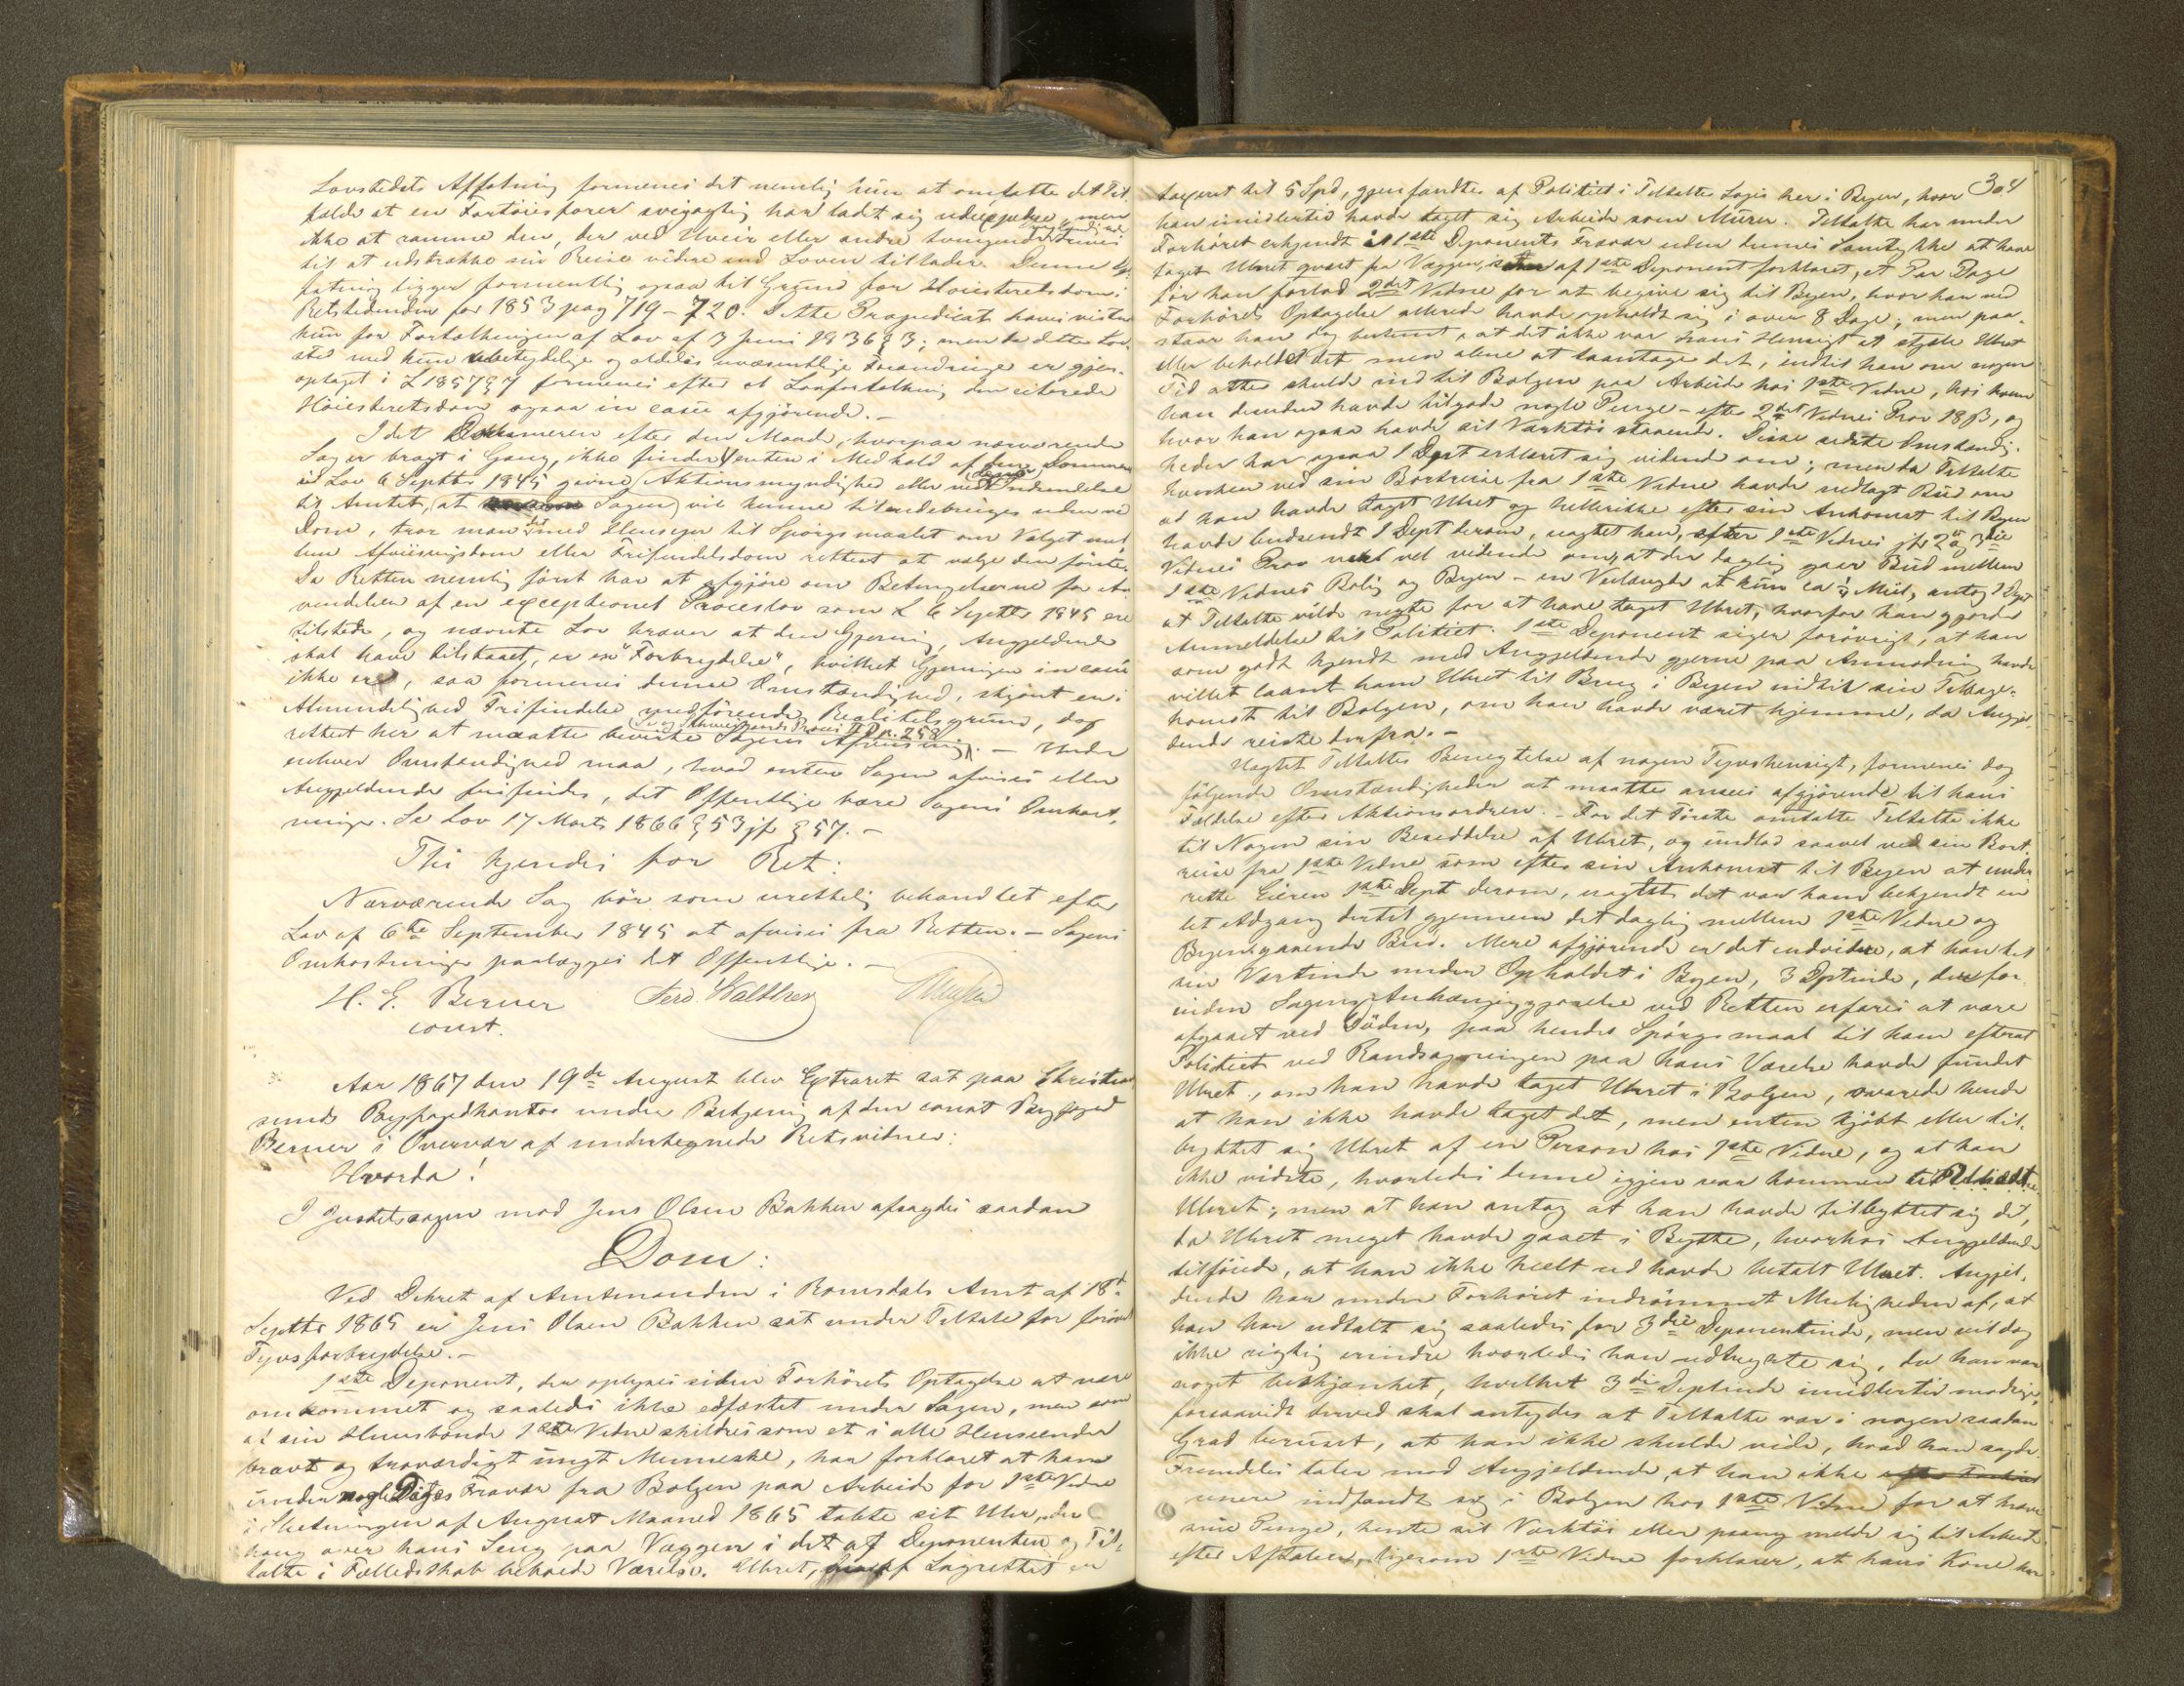 Lovstedets Affatning formenes det nemlig kun at omfatte det Til-
fælde at en Fartøiesfører svigagtig har ladt sig udexpedere, men
ikke at ramme den, der ved Uveir eller andre tvingende
til at udstrække sin Reise videre end Loven tillader. Denne
fatning ligger formentlig ogsaa til Grund for Høiesteretsdom i
Retstidenden for 1853 pag 719-720. Dette Præjudicat haves vistnok
kun for Fortolkningen af Lov af 3 Juni 1836 § 3; men da dette Lov-
sted med kun ubetydelige og aldeles uvæsentlige Forandringer er gjen-
optaget i L 1857 § 7 formenes efter al Lovfortolkning den citerede
Høiesteretsdom ogsaa in casu afgjørende. -
I det Dommeren efter den Maade, hvorpaa nærværende
Sag er bragt i Gang, ikke finder enten i Medhold af Dommeren
ved Lov 6 Septbr 1845 givne Aktionsmyndighed eller ved Indsendelse
til Amtet, at Sagen vil kunne tilendebringes uden ved
Dom, tror man det med Hensyn til Spørgsmaalet om Valget mel-
lem Afviisningsdom eller Frifindelsesdom rettest at vælge den første.
Da Retten nemlig først har at afgjøre om Betingelserne for An-
vendelsen af en exceptionel Proceslov som L 6 Septbr 1845 ere
tilstede, og nævnte Lov kræver at den Gjerning, Angjeldende
skal have tilstaaet, er en "Forbrydelse", hvilket Gjerningen in casu
ikke er, saa formenes denne Omstændighed, skjønt en i
Almindelighed Frifindelse medførende Realitetsgrund, dog
rettest her at maatte bevirke Sagens Afvisning. - Under
enhver Omstændighed maa, hvad enten Sagen afvises eller
Angjeldende frifindes, det Offentlige bære Sagens Omkost-
ninger. Se Lov 17 Marts 1866 § 53 jfr § 57. -
Thi kjendes for Ret:
Nærværende Sag bør som urettelig behandlet efter
Lov af 6te September 1845 at afvises fra Retten. - Sagens
Omkostninger paalægges det Offentlige. -
H. E. Berner Ferd. Walther
const.
Aar 1867 den 19de August blev Extraret sat paa Christian
sunds Byfogedkontor under Betjening af den const Byfoged
Berner i Overvær af undertegnede Retsvidner:
Hvorda!
I Justitssagen mod Jens Olsen Bakken afsagdes saadan
Dom:
Ved Dekret af Amtmanden i Romsdals Amt af 18d
Septbr 1865 er Jens Olsen Bakken sat under Tiltale for forøvet
Tyvsforbrydelse. -
1ste Deponent, der oplyses siden Forhørets Optagelse at være
omkommet og saaledes ikke edfæstet under Sagen, men som
af sin Huusbonde 1ste Vidne skildres som et i alle Henseender
bravt og troværdigt ungt Menneske, har forklaret at ham
under nogle Dages Fravær fra Bolgen paa Arbeide for 1ste Vidne
i Slutningen af August Maaned 1865 tabte sit Uhr, der
hang over hans Seng paa Væggen i det af Deponenten og Til-
talte i Fælledsskab beboede Værelse. Uhret, Lagrettet er
304
taxeret til 5 Spd, gjenfandtes af Politiet i Tiltaltes Logis her i Byen, hvor
han imidlertid havde taget sig Arbeide som Murer. Tiltalte har under
Forhøret erkjendt i 1ste Deponents Fravær uden dennes Samtykke at have
taget Uhret qvæst fra Væggen, af 1ste Deponent forklaret, et Par Dage
før han forlod 2det Vidne for at begive sig til Byen, hvor han ved
Forhørets Optagelse allerede havde opholdt sig i over 8 Dage; men paa-
staar han dog bestemt, at det ikke var hans Hensigt at stjæle Uhret
eller beholde det men alene at laantage det, indtil han om nogen
Tid atter skulde ind til Bolgen paa Arbeide hos 1ste Vidne, hos hvem
han desuden havde tilgode nogle Penge - efter 2det Vidnes Prov 18 ß, og
hvor han ogsaa havde sit Værktøi staaende. Disse sidste Omstændig-
heder har ogsaa 1 Dept erklæret sig vidende om; men da Tiltalte
hverken ved sin Bortreise fra 1ste Vidne havde nedlagt Bud om
at han havde taget Uhret og hellerikke efter sin Ankomst til Byen
havde budsendt 1 Dept derom, uagtet han, efter 1ste Vidnes jfr 2det 3die
Vidnes Prov vel vidende om, at der daglig gaar Bud mellem
1ste Vidnes Bolig og Byen - en Veilængde at kun ca ¼ Miil, antog 1 Dept
at Tiltalte vilde negte for at have taget Uhret, hvorfor han gjorde
Anmeldelse til Politiet. 1ste Deponent siger forøvrigt, at han
som godt kjendt med Angjeldende gjerne paa Anmodning havde
villet laant ham Uhret til Brug i Byen indtil sin Tilbage-
komst til Bolgen, om han havde været hjemme, da Angjel-
dende reiste derfra. -
Uagtet Tiltaltes Benegtelse af nogen Tyvshensigt, formenes dog
følgende Omstændigheder at maatte ansees afgjørende til hans
Fældelse efter Aktionsordren. - For det Første omtalte Tiltalte ikke
til Nogen sin Besiddelse af Uhret, og undlod saavel ved sin Bort-
reise fra 1ste Vidne som efter sin Ankomst til Byen at under
rette Eieren 1ste Dept derom, uagtet det var ham bekjendt en
let Adgang dertil gjennem det daglig mellem 1ste Vidne og
Byen gaaende Bud. Mere afgjørende er det endvidere, at han til
sin Værtinde under Opholdet i Byen, 3 Dptinde, der for
inden Sagens Anhængiggjørelse ved Retten erfares at være
afgaaet ved Døden, paa hendes Spørgsmaal til ham efterat
Politiet ved Randsagningen paa hans Værelse havde fundet
Uhret, om han havde taget Uhret i Bolgen, svarede hende
at han ikke havde taget det, men enten kjøbt eller til-
byttet sig Uhret af en Person hos 1ste Vidne, og at han
ikke vidste, hvorledes denne igjen var kommen til
Uhret; men at han antog at han havde tilbyttet sig det,
da Uhret meget havde gaaet i Bytte, hvorhos Angjeldende
tilføiede, at han ikke heelt ud havde betalt Uhret. Angjel-
dende har under Forhøret indrømmet Muligheden af, at
han har udtalt sig saaledes for 3die Deponentinde, men vil dog
ikke rigtig erindre hvorledes han udtrykte sig, da han var
noget beskjænket, hvilket 3die Deptinde imidlertid modsiger,
forsaavidt derved skal antydes at Tiltalte var i nogen saadan
Grad beruset, at han ikke skulde vide, hvad han sagde.
Fremdeles taler mod Angjeldende, at han ikke
senere indfandt sig i Bolgen hos 1ste Vidne for at hæve
sine Penge, hente sit Værktøi eller paany melde sig til Arbeide
efter Aftalen, ligesom 1ste Vidne forklarer, at hans Kone har